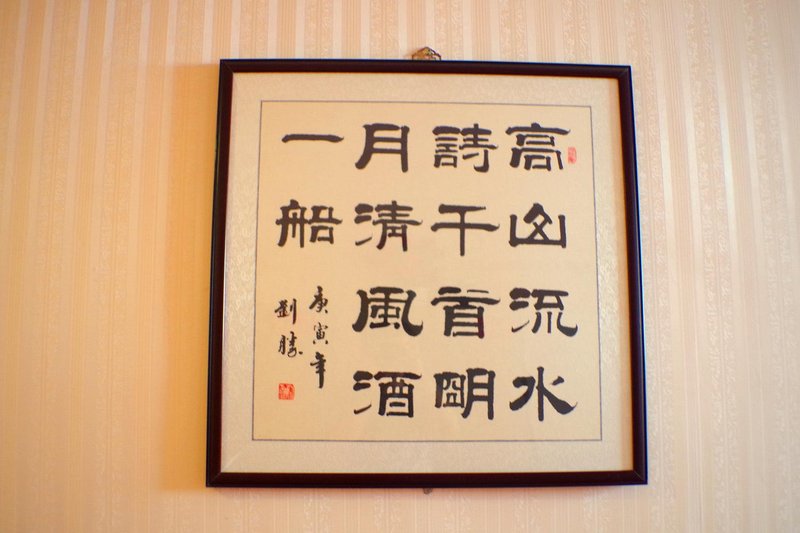 高山流水
詩千首明
月清風酒
一船
庚寅年
劉勝